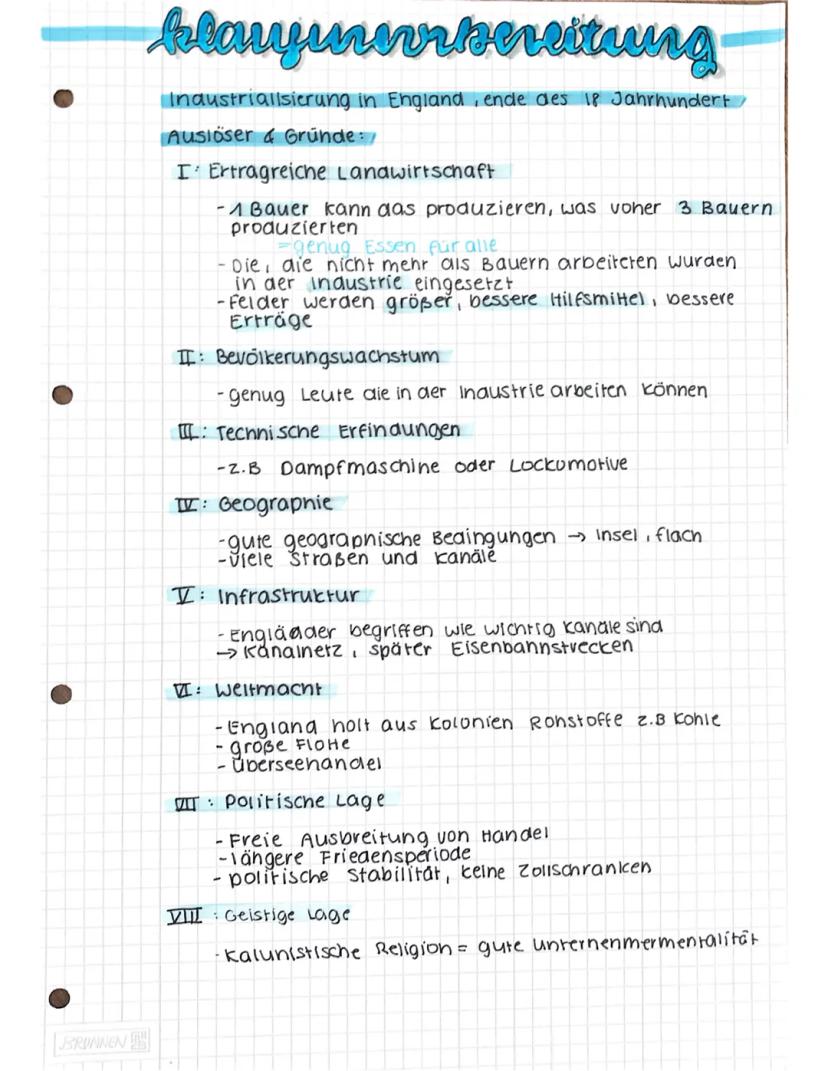 klausurvorbereitung
Industrialisierung in England, ende des 18 Jahrhundert
Auslöser & Gründe:
I: Ertragreiche Landwirtschaft
-1 Bauer kann das produzieren, was voher 3 Bauern
produzierten
=genug Essen für alle
- Die, die nicht mehr als Bauern arbeiteten wurden
in der Industrie eingesetzt
-Felder werden größer, bessere Hilfsmittel, bessere
Erträge
II: Bevölkerungswachstum
-genug Leute die in der Industrie arbeiten können
III: Technische Erfindungen
-z.B Dampfmaschine oder Lockomotive
IV: Geographie
-gute geographische Bedingungen → Insel, flach
-viele Straßen und Kanäle
V: Infrastruktur
- Engländer begriffen wie wichtig Kanäle sind
→ Kanalnetz, später Eisenbahnstrecken
VI: Weltmacht
-England holt aus Kolonien Rohstoffe z.B Kohle
- große Flotte
- Überseehandel
VII: Politische Lage
- Freie Ausbreitung von Handel
-längere Friedensperiode
- politische Stabilität, keine Zollschranken
VIII: Geistige Lage
-Kalvinistische Religion = gute Unternehmermentalität
BRUNNEN